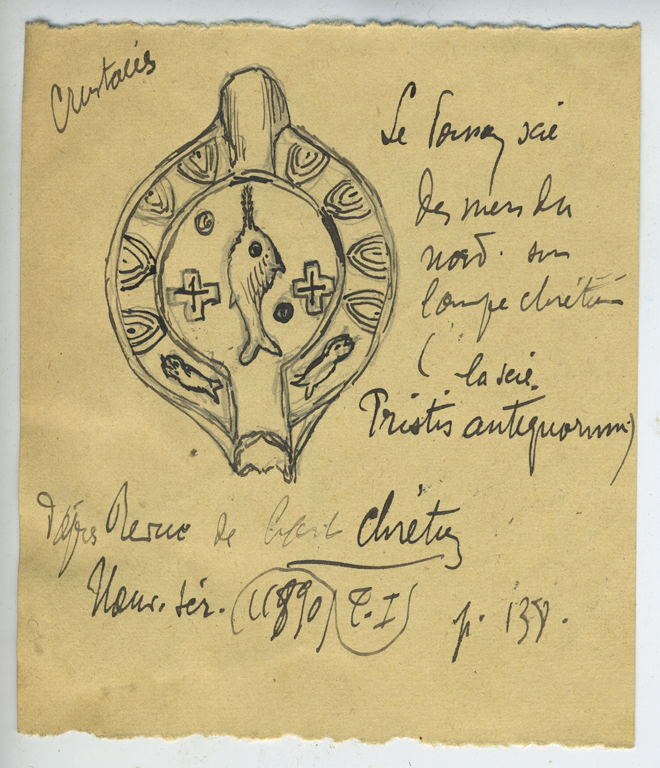 Crustacés
Le Poisson scie
des mers du
nord. sur
lampe chrétien
( la scie.
Pristis antiquorum)
D'après Revue de l'art chrétien
Nouv. sér. (1890) T. I p. 138.